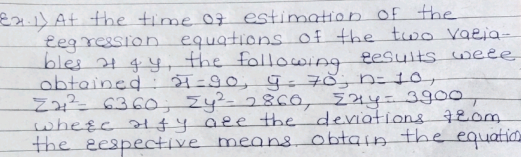 Ex.1) At the time of estimation of the
regression equations of the two varia-
bles x & y, the following results were
obtained : x̄=90, ȳ= 70, n= 10,
Σx²= 6360, Σy²= 2860, Σxy= 3900,
where x & y are the deviations from
the respective means. obtain the equatio